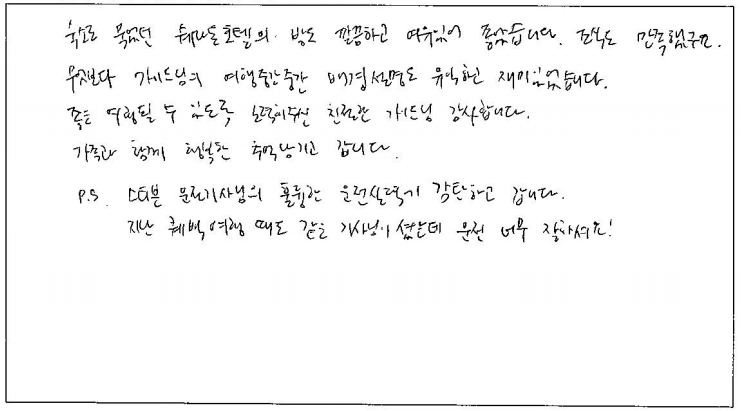 숙소로 묵었던 쉐라톤호텔의 방도 깔끔하고 여유있어 좋았습니다. 조식도 만족했구요.
무엇보다 가이드님의 여행중간중간 배경설명도 유익하고 재미있었습니다.
좋은 여행될 수 있도록 노력해주신 친절한 가이드님 감사합니다.
가족과 함께 행복한 추억남기고 갑니다.
P.S. 스티븐 운전기사님의 훌륭한 운전실력에 감탄하고 갑니다.
지난 퀘백여행 때도 같은 기사님이셨는데 운전 너무 잘하셔요!